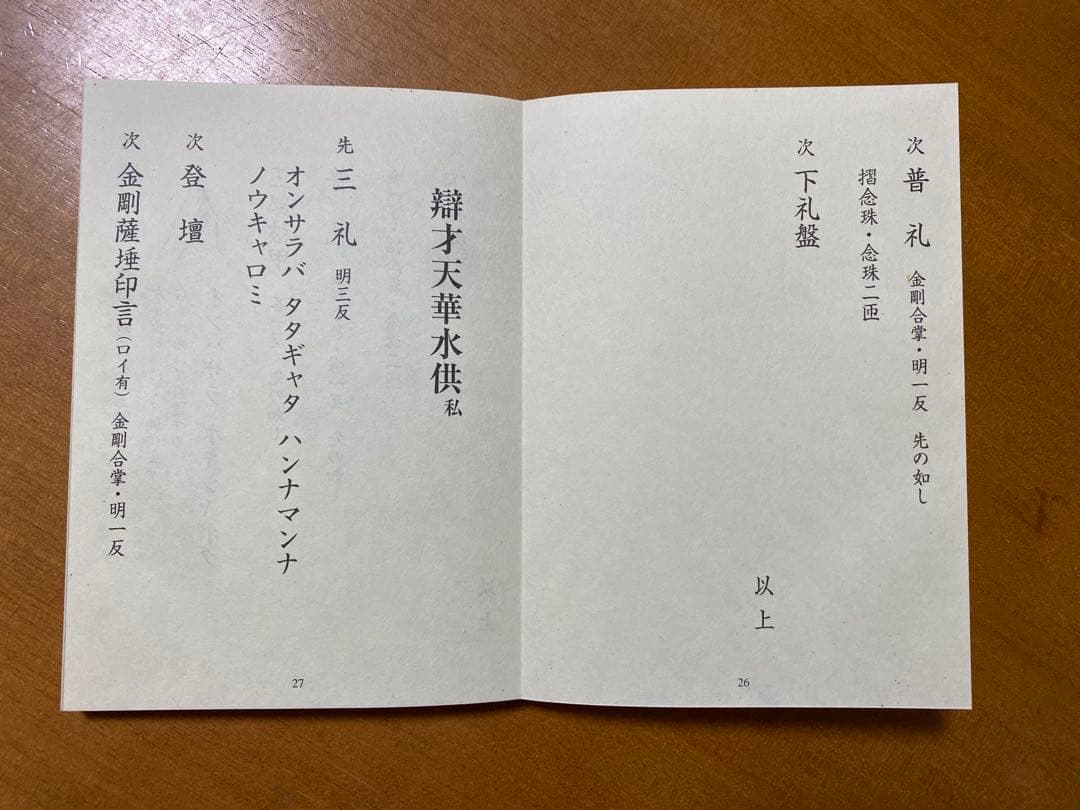 次 普礼 金剛合掌・明一反 先の如し
摺念珠・念珠二匝
次 下礼盤
以上
26
辯才天華水供 私
先 三礼 明三反
オンサラバ タタギャタ ハンナマンナ
ノウキャロミ
次 登壇
次 金剛薩埵印言(ロイ有) 金剛合掌・明一反
27